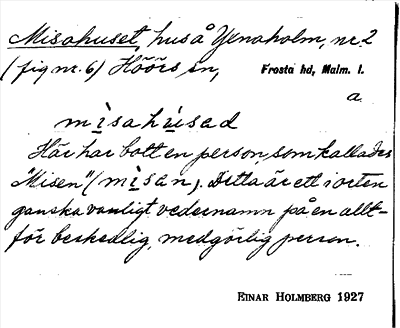 Misahuset, hus å Yenaholm, nr. 2
(fig nr. 6) Höörs sn, Frosta hd, Malm. l.
a.
misahùsad
Här har bott en person, som kallades
"Misen" (mìsan). Detta är ett i orten
ganska vanligt vedernamn på en allt-
för beskedlig, medgörlig person.
EINAR HOLMBERG 1927